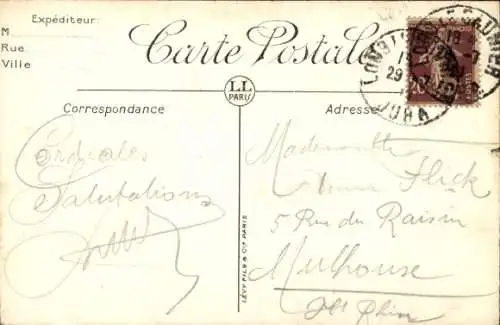 Expéditeur:
M
Rue
Ville
Carte Postale
LL
PARIS
Correspondance
Adresse
Cordiales
Salutations
Mademoiselle
Flick
5 Rue du Raisin
Mulhouse
Ht Rhin
LÉVY FILS & Cie PARIS
LONS LE SAUNIER
JURA
29
20
POSTES